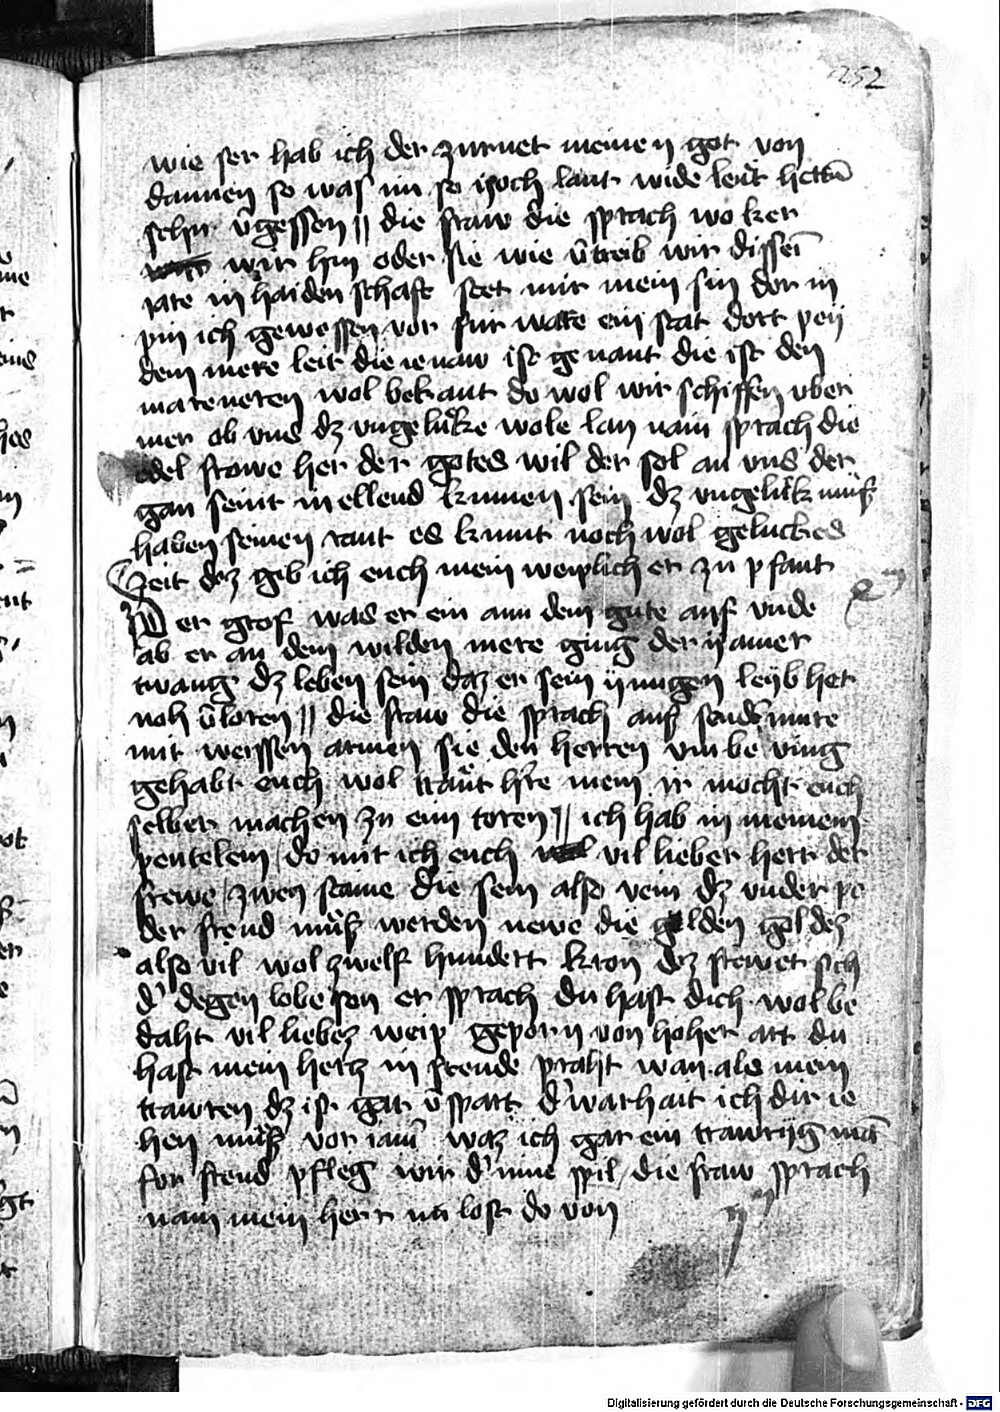 252
wie ser hab ich der zurnet meinen got von
dannen so was im so goch laut wide leüt hettē
sehr v̄gessen || die fraw die sprach wo ker
wir hin oder sie wie v̄treib wir dissē
rate in haiden schaft stet mir mein sin dor in
pin ich gewessen vor fur ware ein stat dort peÿ
dem mere leit die ienaw ist genant die ist den
mareneren wol bekant do wol wir schiffen vber
mer ob vns dz vngelücke wole lan nain sprach die
edel frowe her der gotes wil der sol an vns der
gan seint in ellend kumen sein dz vngelück müß
haben seinen rant es kumt noch wol geluckes
Zeit dez geb ich euch mein weiplich er zu pfant
Der grof was er ein ann dem gute auf vnde
ab er an dem wilden mere ging der ÿamer
twang dz leben sein daz er sein ÿungen leÿb het
noh v̄loren || die fraw die sprach auß senden mute
mit weissen armen sie den herren vmbe ving
gehabt euch wol traüt hr̄e mein ir mocht euch
selber machen zu eim toren || ich hab in meinem
peutelein do mit ich euch vil lieber herr der
frewe zwen staine die sein also rein dz vnder pe
der freud müß werden newe die gelden goldez
also vil wol zwelf hundert kron dez frewet sich
d' degen lobeson er sprach du hast dich wol be
daht vil liebez weip geporn von hoher art du
hast mein hertz in freude praht wan als mein
trawren dz ist gar v̄spart d' warhait ich dir ie
hen müß vor iam' waz ich gar ein trawrig mā
for freud pfleg wir d' mine spil die fraw sprach
nain mein herr nu lost do von